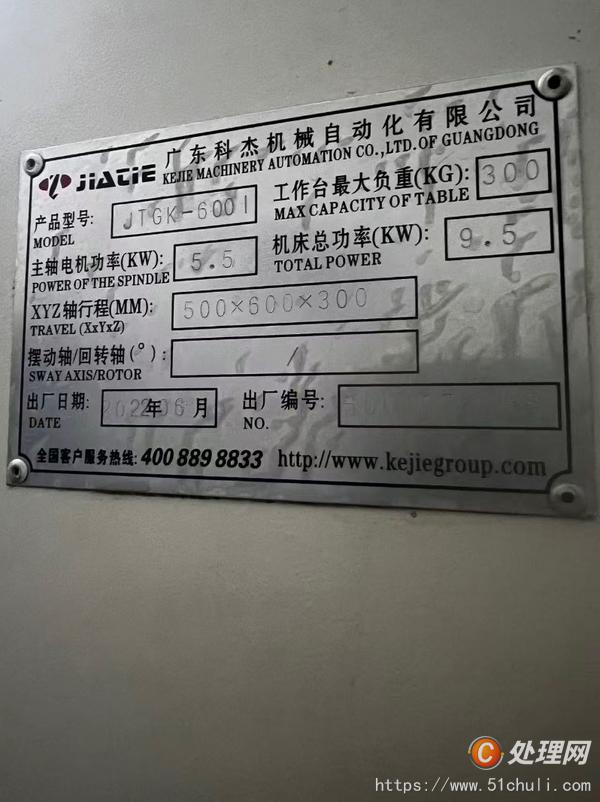 JIATIE 广东科杰机械自动化有限公司
KEJIE MACHINERY AUTOMATION CO.,LTD.OF GUANGDONG
产品型号: JTGK-600I
MODEL
工作台最大负重(KG): 300
MAX CAPACITY OF TABLE
主轴电机功率(KW): 5.5
POWER OF THE SPINDLE
机床总功率(KW): 9.5
TOTAL POWER
XYZ轴行程(MM): 500×600×300
TRAVEL (XxYxZ)
摆动轴/回转轴(°): /
SWAY AXIS/ROTOR
出厂日期: 2022年06月
DATE
出厂编号:
NO.
全国客户服务热线: 400 889 8833 http://www.kejiegroup.com
C 处理网
https://www.51chuli.com